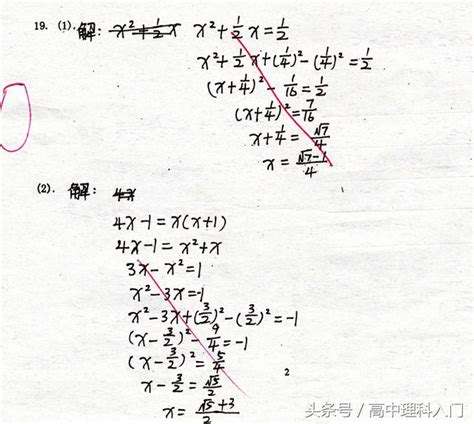 19. (1). 解: x²+½x x²+½x=½
x²+½x+(¼)²-(¼)²=½
(x+¼)²-1/16=½
(x+¼)²=7/16
x+¼=√7/4
x=(√7-1)/4
(2). 解: 4x
4x-1=x(x+1)
4x-1=x²+x
3x-x²=1
x²-3x=-1
x²-3x+(3/2)²-(3/2)²=-1
(x-3/2)²-9/4=-1
(x-3/2)²=5/4
x-3/2=√5/2
2
x=(√5+3)/2
头条号 / 高中理科入门